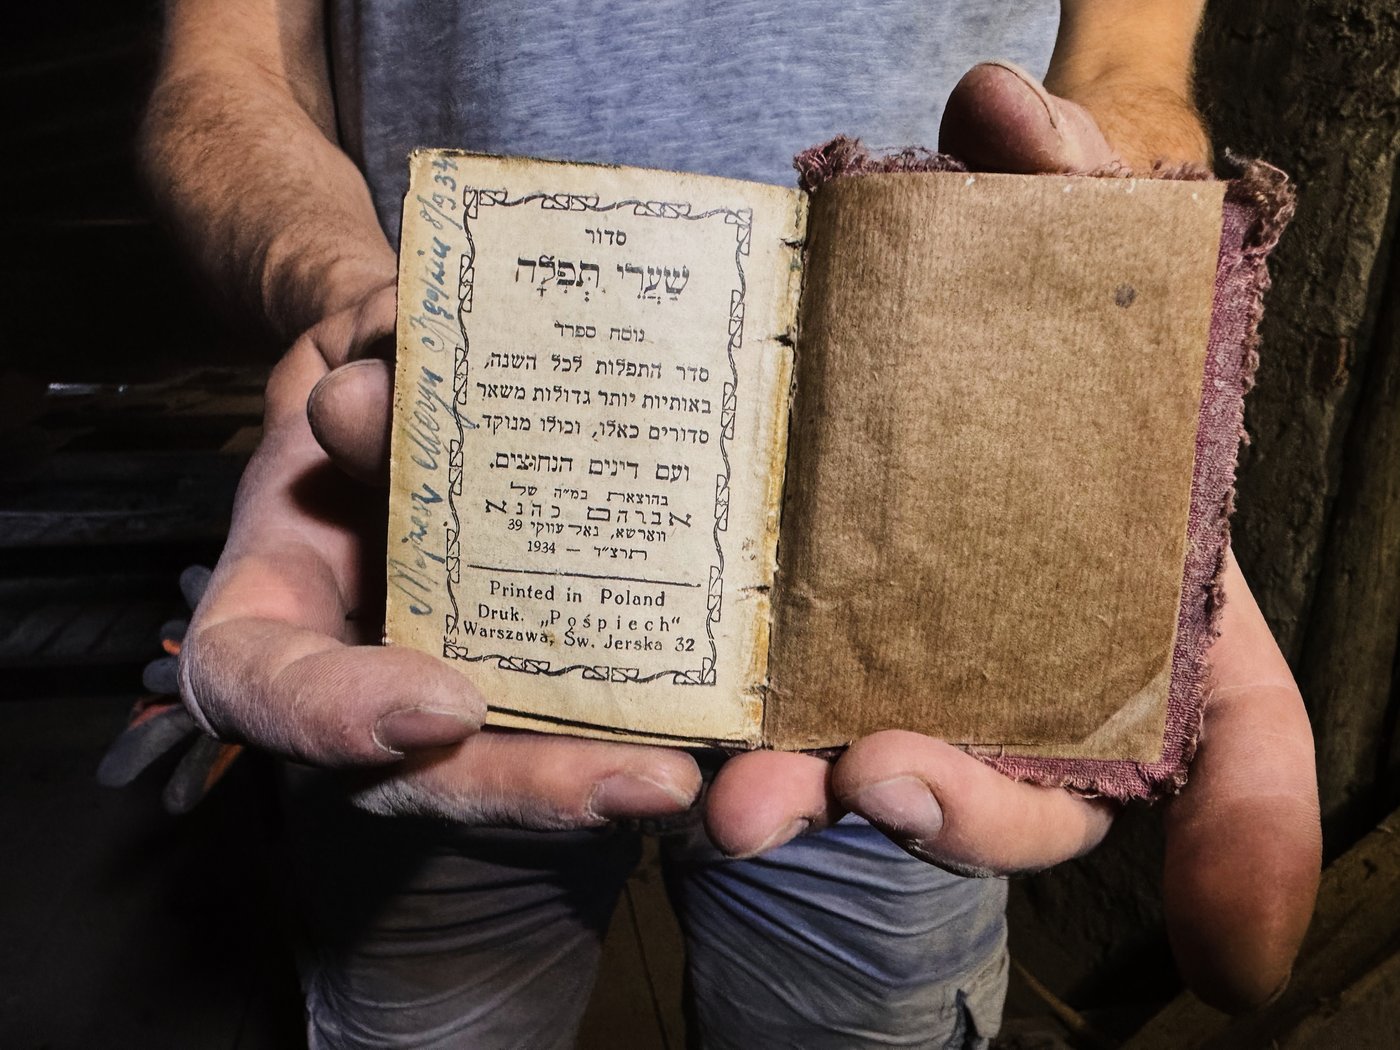 סדור
שַׁעֲרֵי תְּפִלָּה
נוסח ספרד
סדר התפלות לכל השנה,
באותיות יותר גדולות משאר
סדורים כאלו, וכולו מנוקד.
ועם דינים הנחוצים.
בהוצאת במ״ה של
אברהם כהנא
ווארשא, נאלעווקי 39
תרצ״ד — 1934
Printed in Poland
Druk. „Pośpiech“
Warszawa, Św. Jerska 32
8/934